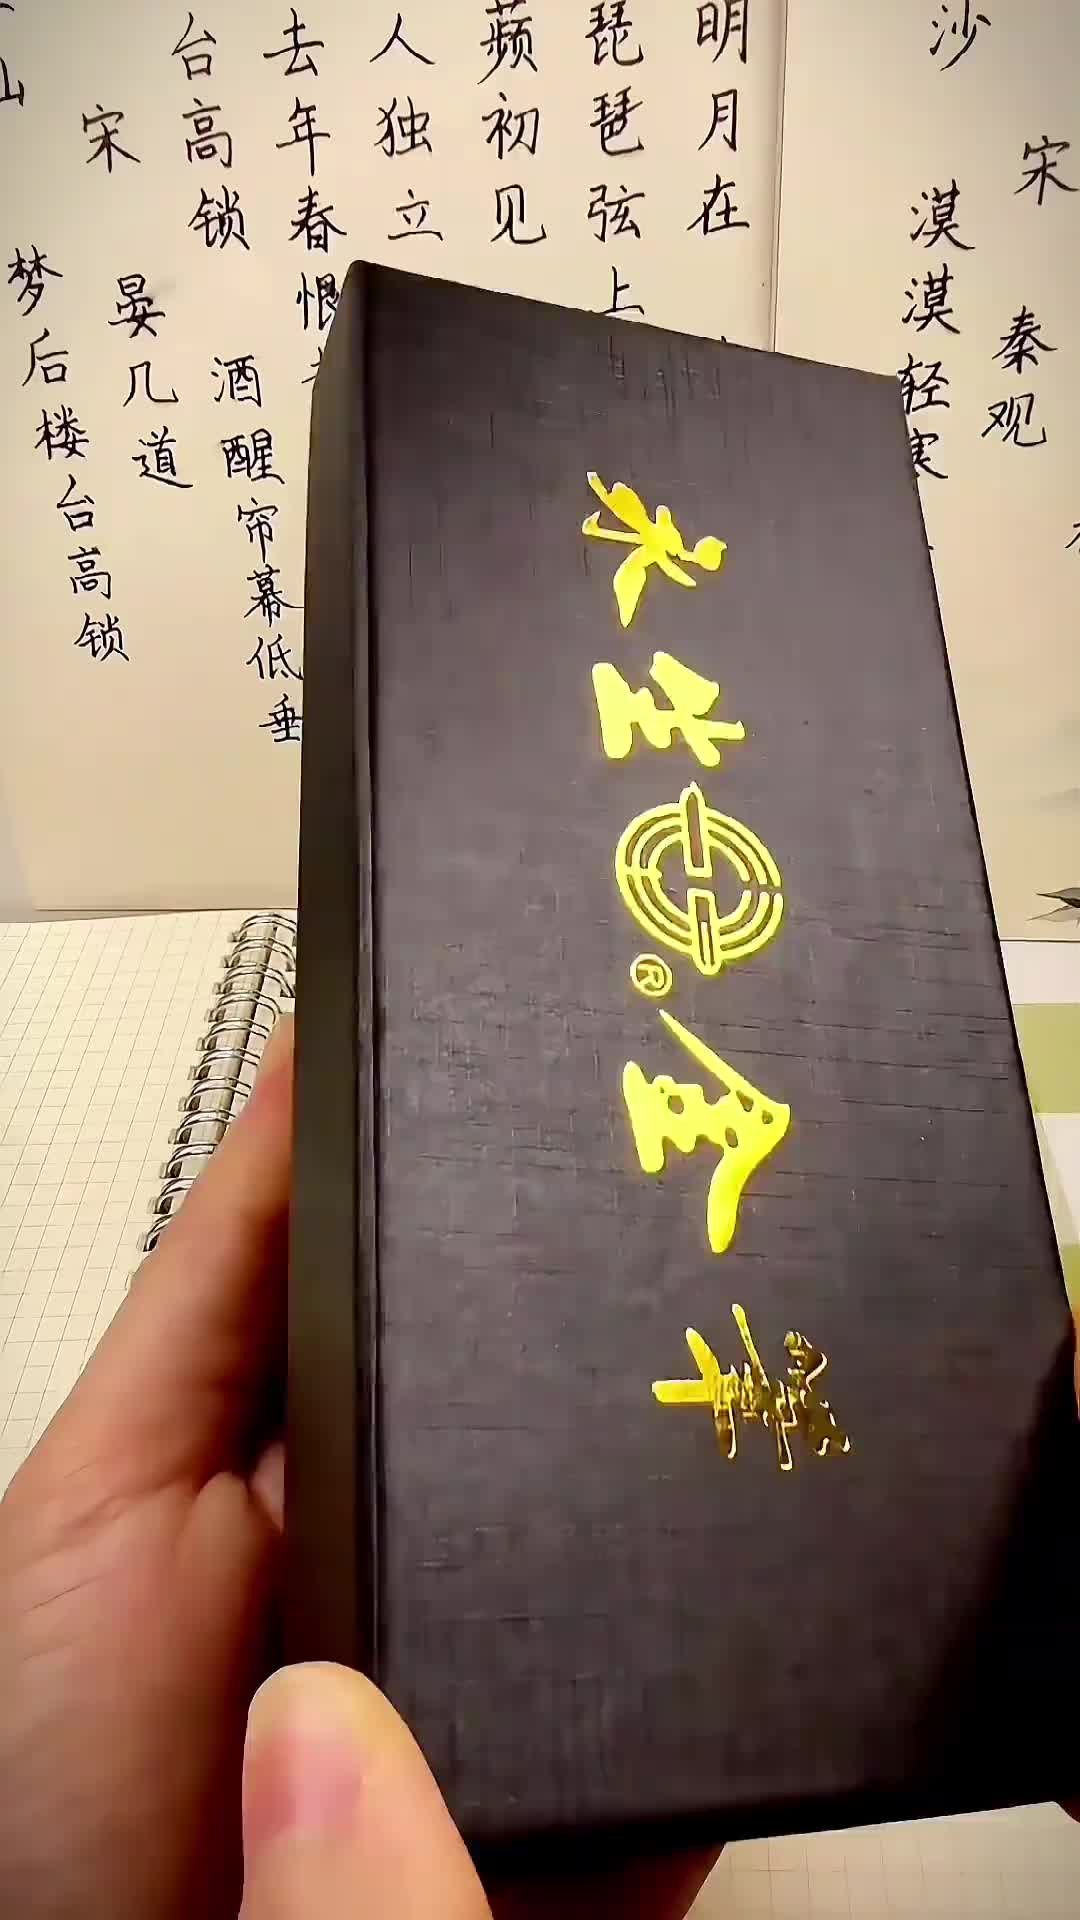 永生®金筆
沙
宋
秦观
漠漠轻寒
明月在
琵琶弦上
蘋初见
人独立
去年春恨
台高锁
酒醒帘幕低垂
宋
晏几道
梦后楼台高锁